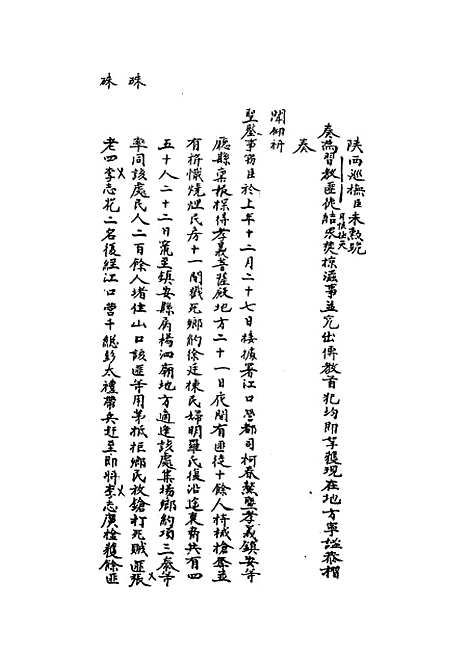 陝西巡撫臣朱勲跪
奏為習教匪徒結衆焚掠滋事並究出傳教首犯均即拏獲現在地方寧謐恭摺
奏
聞仰祈
聖鑒事竊臣於上年十二月二十七日接據署江口營都司柯春鰲暨孝義鎮安等
廳縣稟報探得孝義菩薩殿地方二十一日夜間有匪徒十餘人持械搶
有將懺燒燬民房十一間戳死鄉約徐廷棟民婦明羅氏復沿途裹脅共有四
五十人二十二日竄至鎮安縣屬楊泗廟地方適逢該處集場鄉約項三泰等
率同該處民人二百餘人堵住山口該匪等用茅抵拒鄉民放鎗打死賊匪張
老四李志花二名復經江口營千總彭太禮帶兵赶至即將李志廣擒獲餘匪
硃
硃